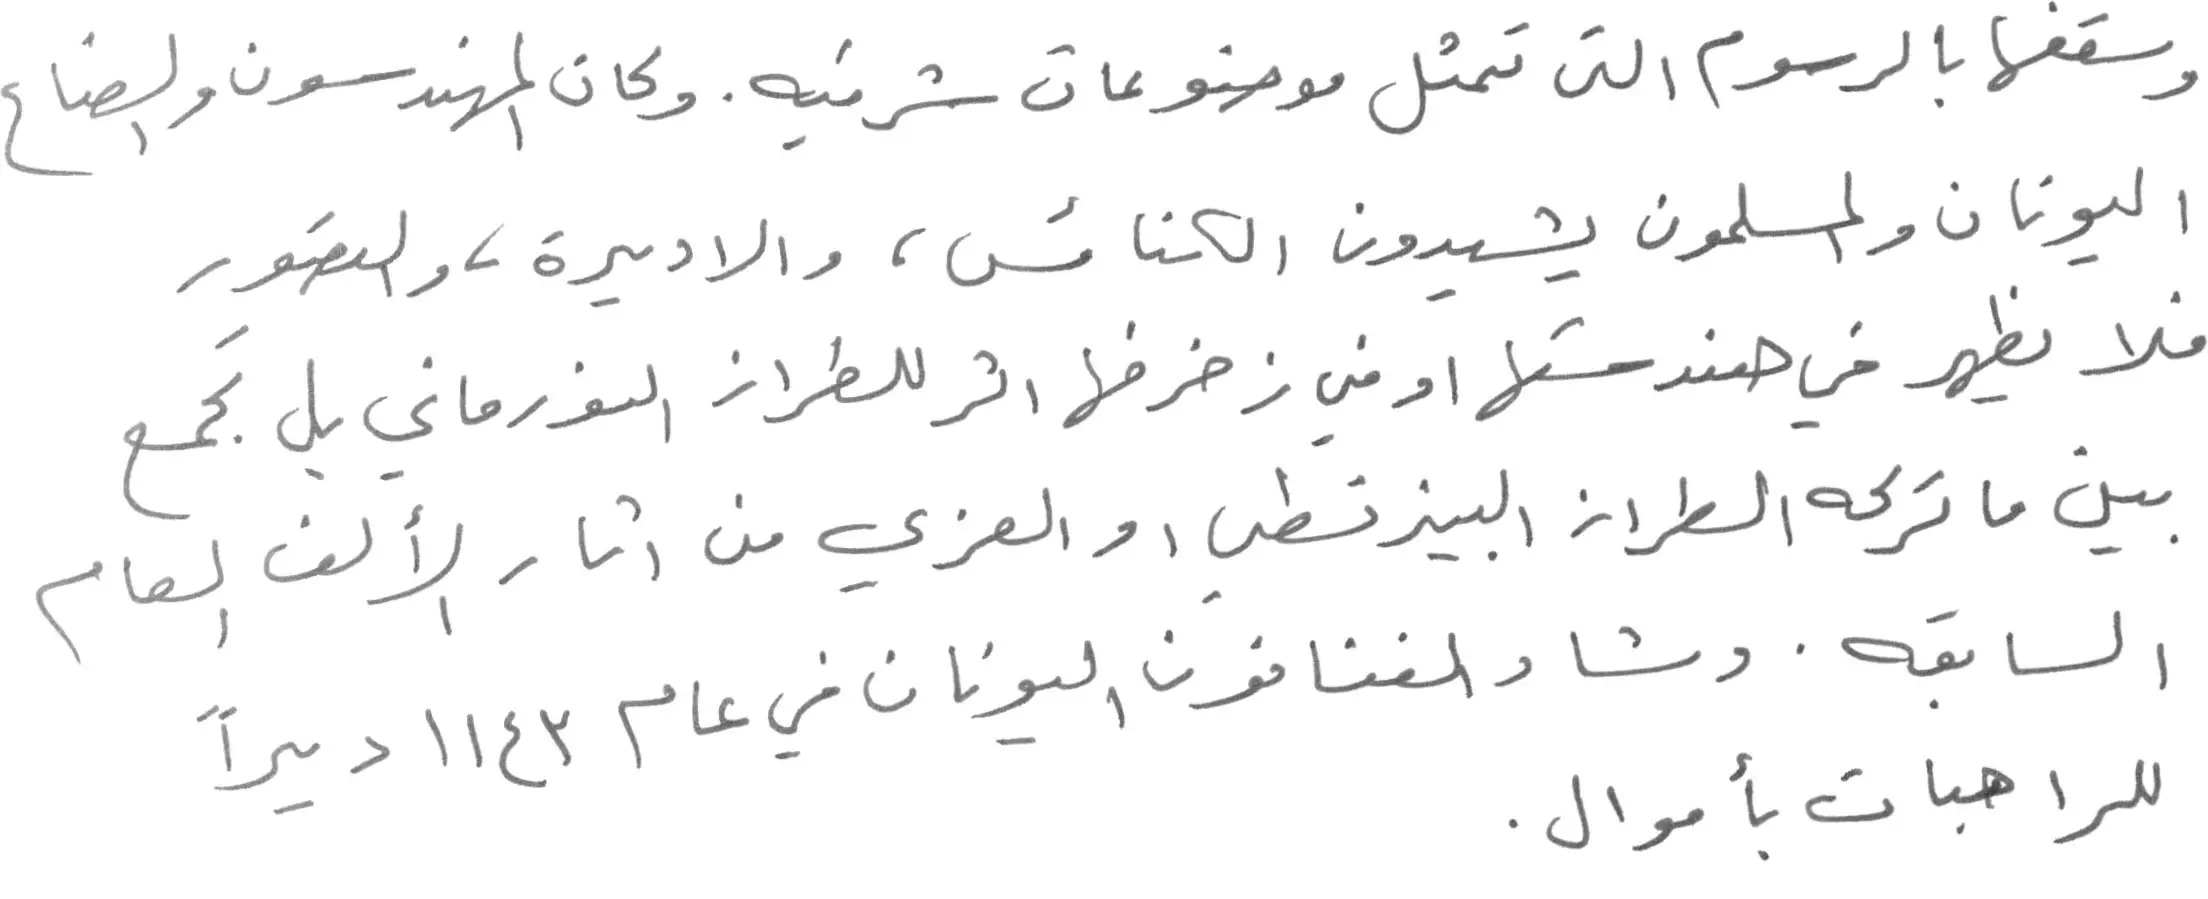 وسقفها بالرسوم التى تمثل موضوعات شرقيه. وكان المهندسون والصناع
اليونان والمسلمون يشيدون الكنائس، والاديرة، والقصور
فلا يظهر في هندستها او في زخرفها اثر للطراز النورماني بل يجمع
بين ما تركه الطراز البيزنطى او العزبي من اثار الألف العام
السابقه. وشاد الفنانون اليونان في عام ١١٤٣ ديراً
للراهبات بأموال.